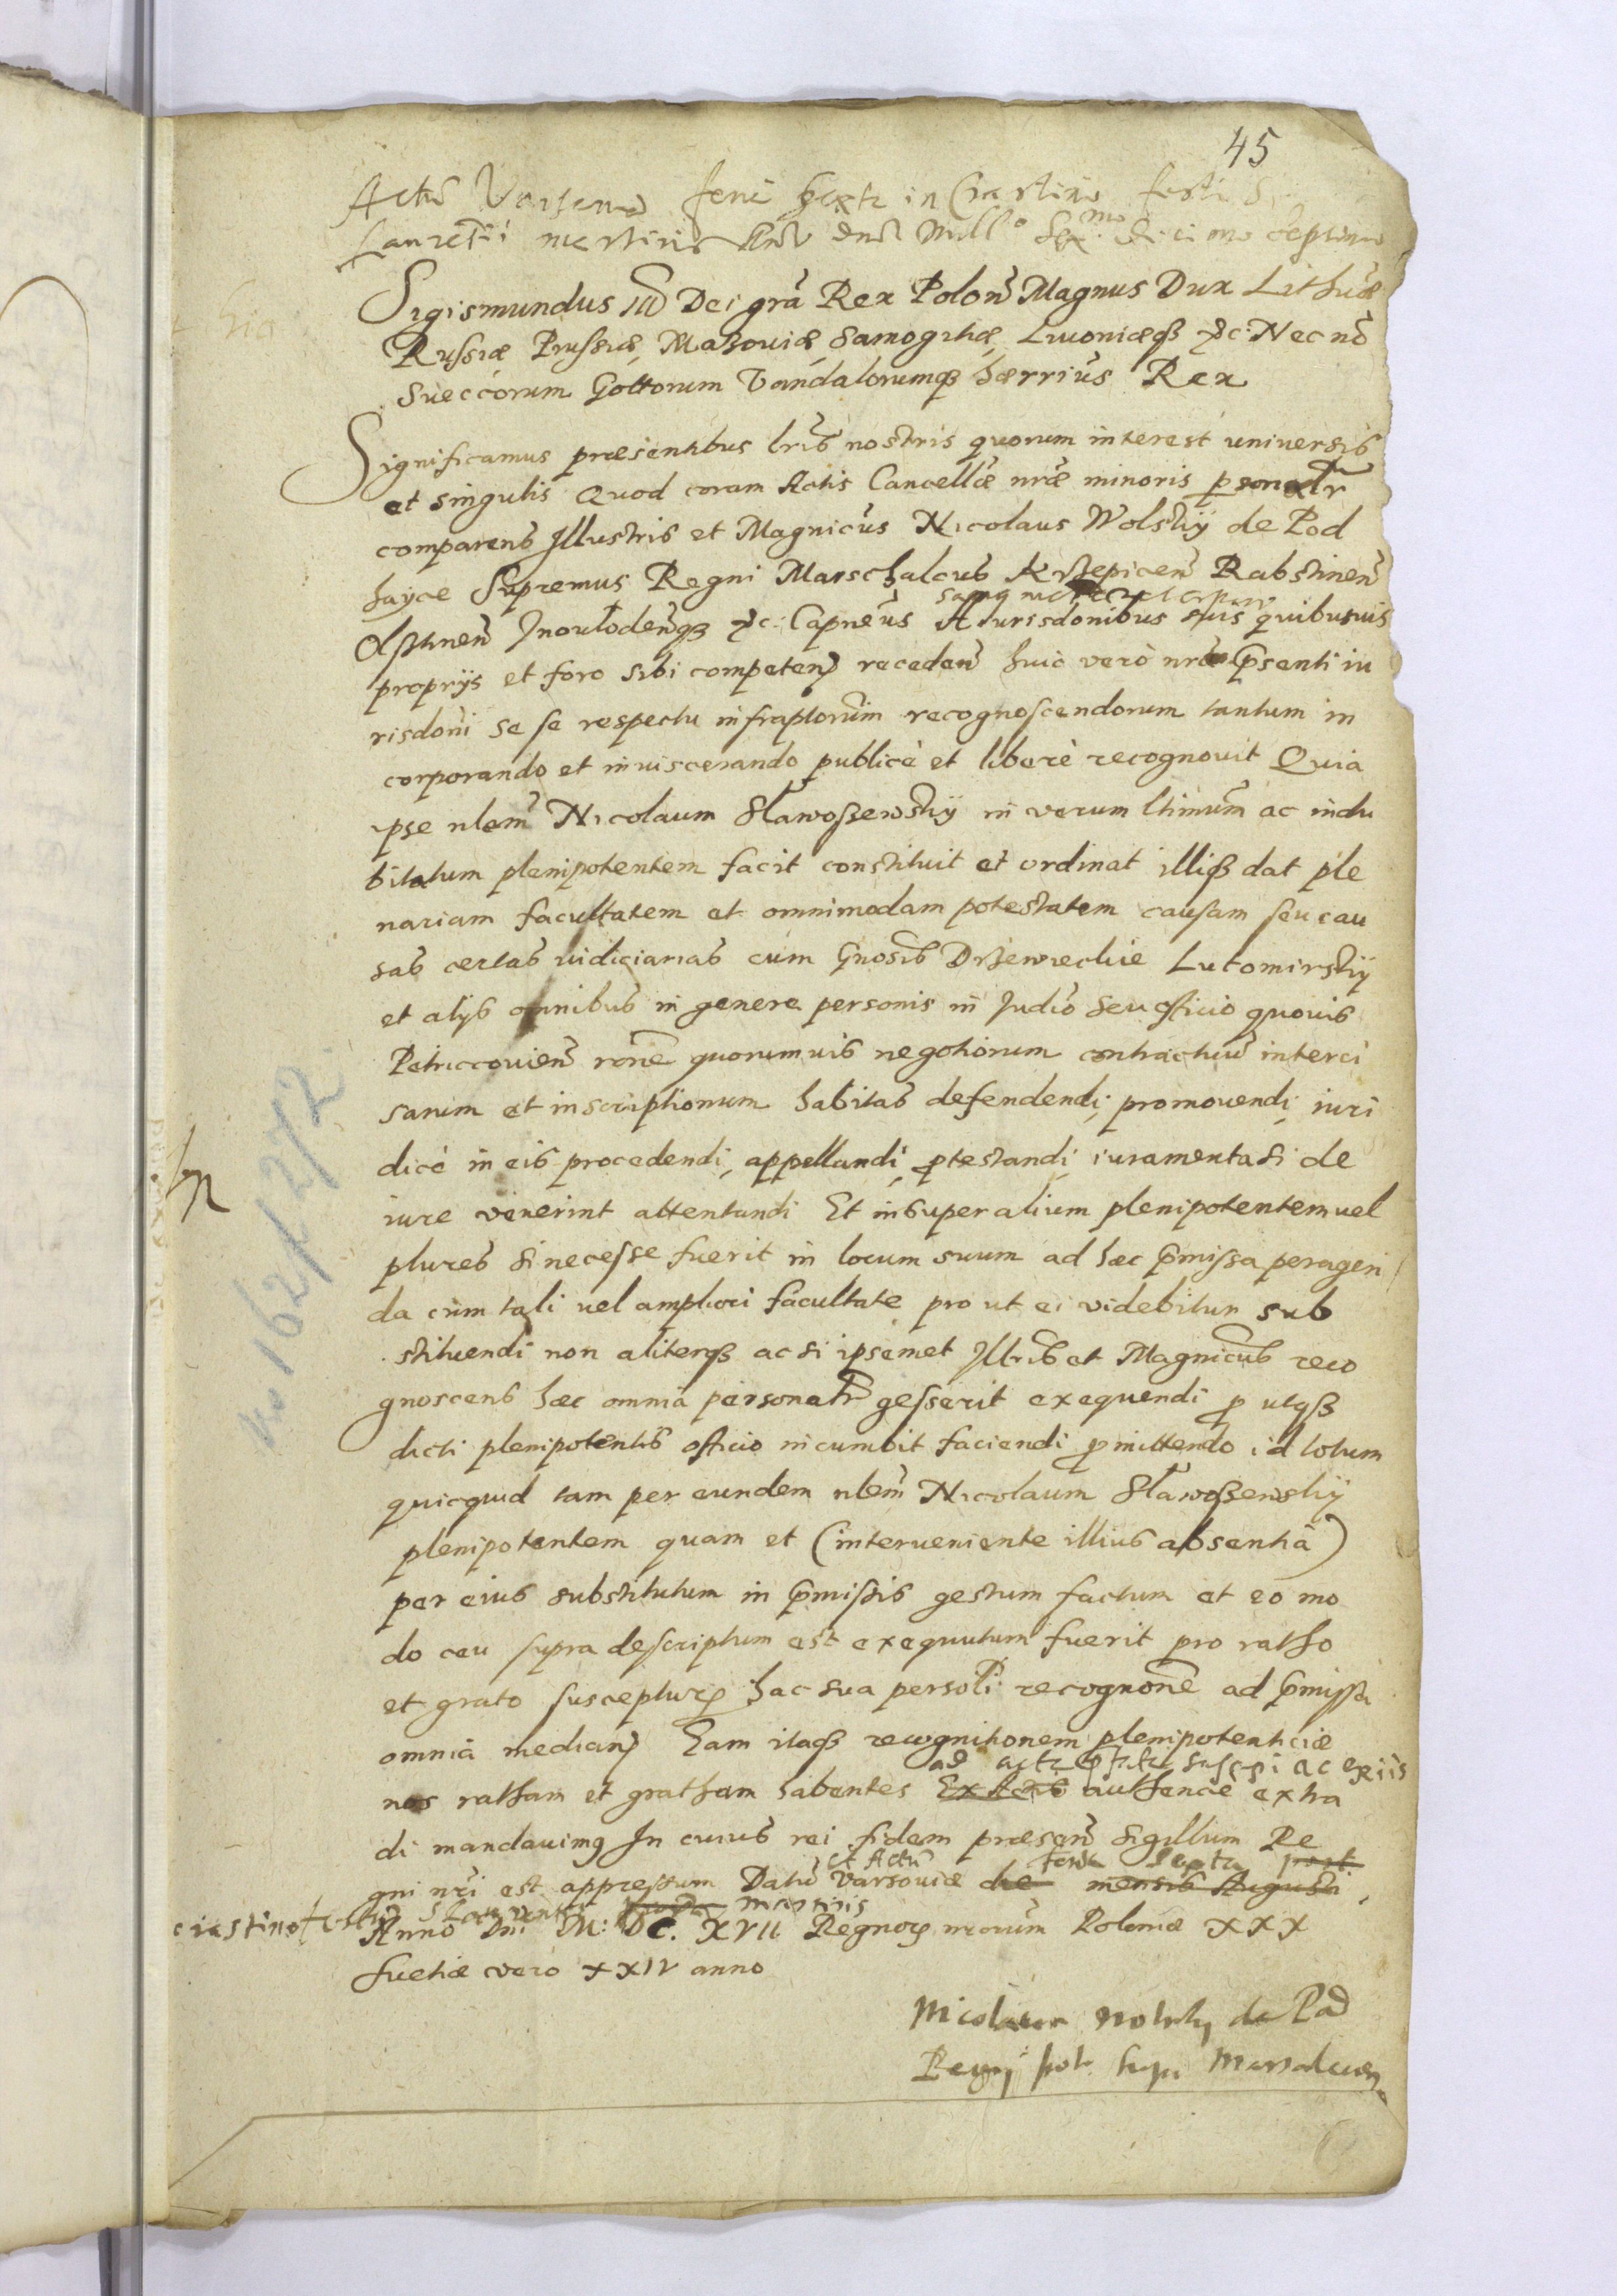 45
Actũ Varsouiæ feria Sexta in Crastino festi S.
Laurentii martiris Anno dni Mill.º Sex.mo decimo septimo
Sigismundus III Dei grã Rex Polon̄ Magnus Dux Lithuæ
Russiæ Prussiæ, Mazouiæ, Samogitiæ, Liuoniæqꝫ &c: Nec nō
Sueccorum Gottorum Vandalorumqꝫ hærrius Rex
Significamus præsentibus lris nostris quorum interest uniuersis
et singulis Quod coram Actis Cancellæ nræ minoris personalr
comparens Illustris et Magnicus Nicolaus Wolskij de Pod
hayce Supremus Regni Marschalcus Krzepicen̄ Rabstinen̄
Olstinen̄ Inouloden̄qꝫ &c: Capneus
A Iurisdonibus suis quibusuis
proprijs et foro sibi competen̄ receden̄ huic verò nræ p̄senti iu
risdoni se se respectu infraptorum recognoscendorum tantum in
corporando et inuiscerando publicè et liberè recognouit Quia
ipse nlem̄ Nicolaum Sławoszewskij in verum ltimum ac indu
bitatum plenipotentem facit constituit et ordinat illiqꝫ dat ple
nariam facultatem et omnimodam potestatem causam seu cau
sas certas iudiciarias cum Gnosis Drzewieckie Lutomirskij
et alijs omnibus in genere personis in Judio seu officio quouis
Petriccouien̄ rōne quorumuis negotiorum contractuū interci
sarum et inscriptionum habitas defendendi, promouendi, iuri
dicè in eis procedendi, appellandi, ꝓtestandi, iuramenta si de
iure venerint attentandi Et insuper alium plenipotentem uel
plures si necesse fuerit in locum suum ad hæc p̄missa peragen
da cum tali uel ampliori facultate pro ut ei videbitur sub
stituendi non aliterqꝫ ac si ipsemet Illris et Magnicus reco
gnoscens hæc omnia personalr gesserit exequendi ꝓ utqꝫ
dicti plenipotentis officio incumbit faciendi ꝓmittendo id totum
quicquid tam per eundem nlem̄ Nicolaum Sławoszewskij
plenipotentem quam et (interueniente illius absentia)
per eius substitutum in p̄missis gestum factum et eo mo
do ceu supra descriptum est exequutum fuerit pro ratho
et grato suscepturꝰ hac sua persoli recognone ad p̄missa
omnia median̄ Eam itaqꝫ recognitionem plenipotentiæ
ad acta suscipi ac ex iis
nos ratham et gratham habentes Ex Actis authence extra
di mandauimꝰ In cuius rei fidem præsen̄ Sigillum Re
et Actũ feria sexta post
gni nri est appressum Datũ Varsouiæ die mensis Augusti
crastino festi S Laurentii martiris
Anno Dni M: DC. XVII Regnorꝫ nrorum Poloniæ XXX
Suetiæ vero XXIV anno
Nicolaus Wolsky de Pod
Regnj pol: supr. Marsalcus